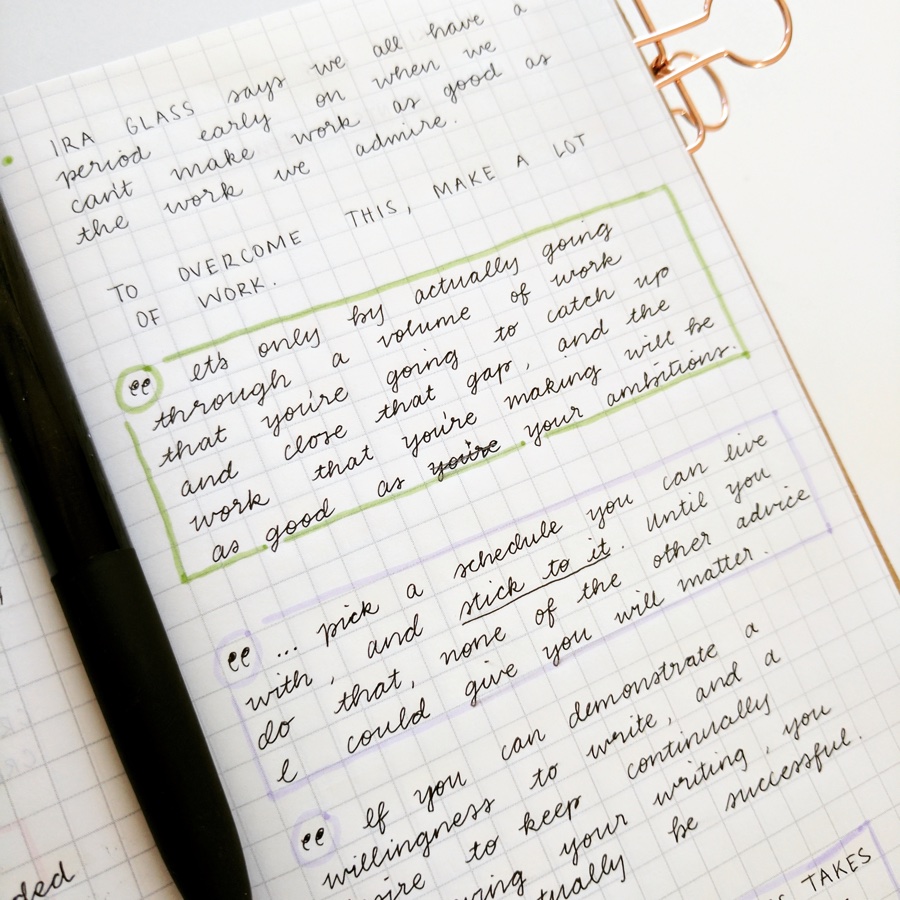 IRA GLASS says we all have a
period early on when we
can't make work as good as
the work we admire.
TO OVERCOME THIS, MAKE A LOT
OF WORK.
It's only by actually going
through a volume of work
that you're going to catch up
and close that gap, and the
work that you're making will be
as good as you're your ambitions.
... pick a schedule you can live
with, and stick to it. Until you
do that, none of the other advice
I could give you will matter.
If you can demonstrate a
willingness to write, and a
to keep continually
your writing, you
be successful.
TAKES
ded